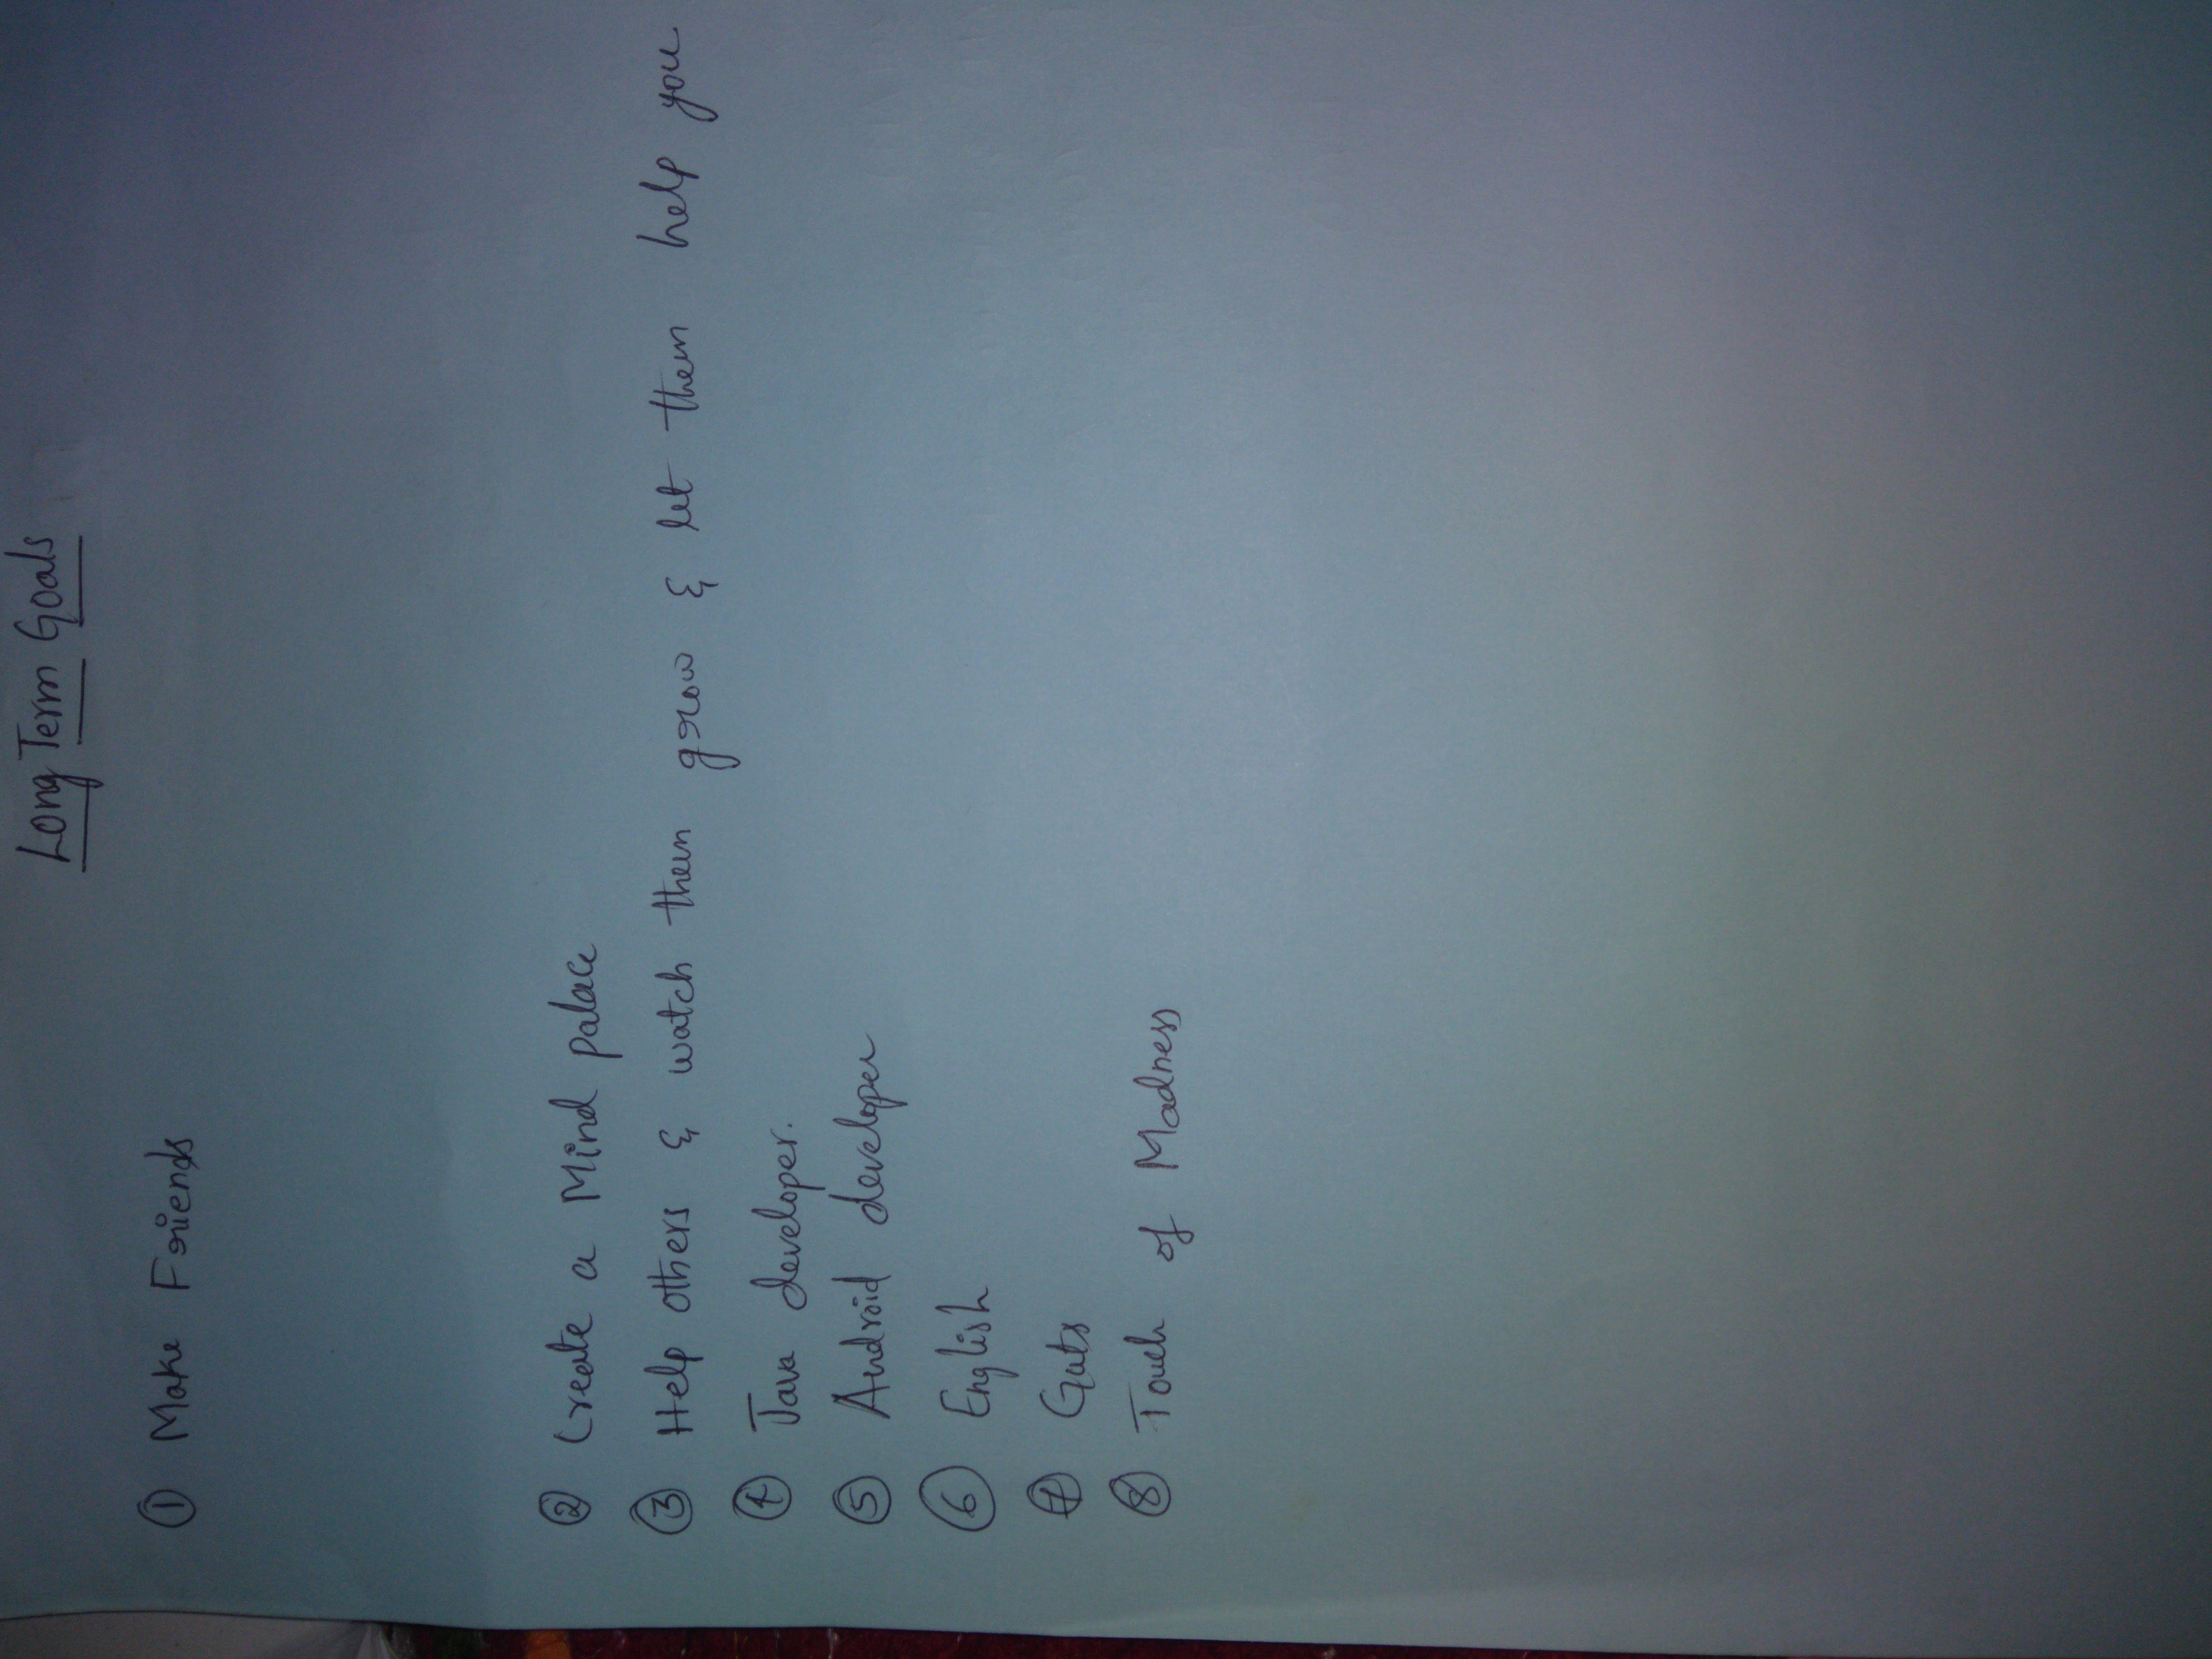 Long Term Goals
① Make Friends
② Create a Mind palace
③ Help others & watch them grow & let them help you
④ Java developer.
⑤ Android developer
⑥ English
⑦ Guts
⑧ Touch of Madness